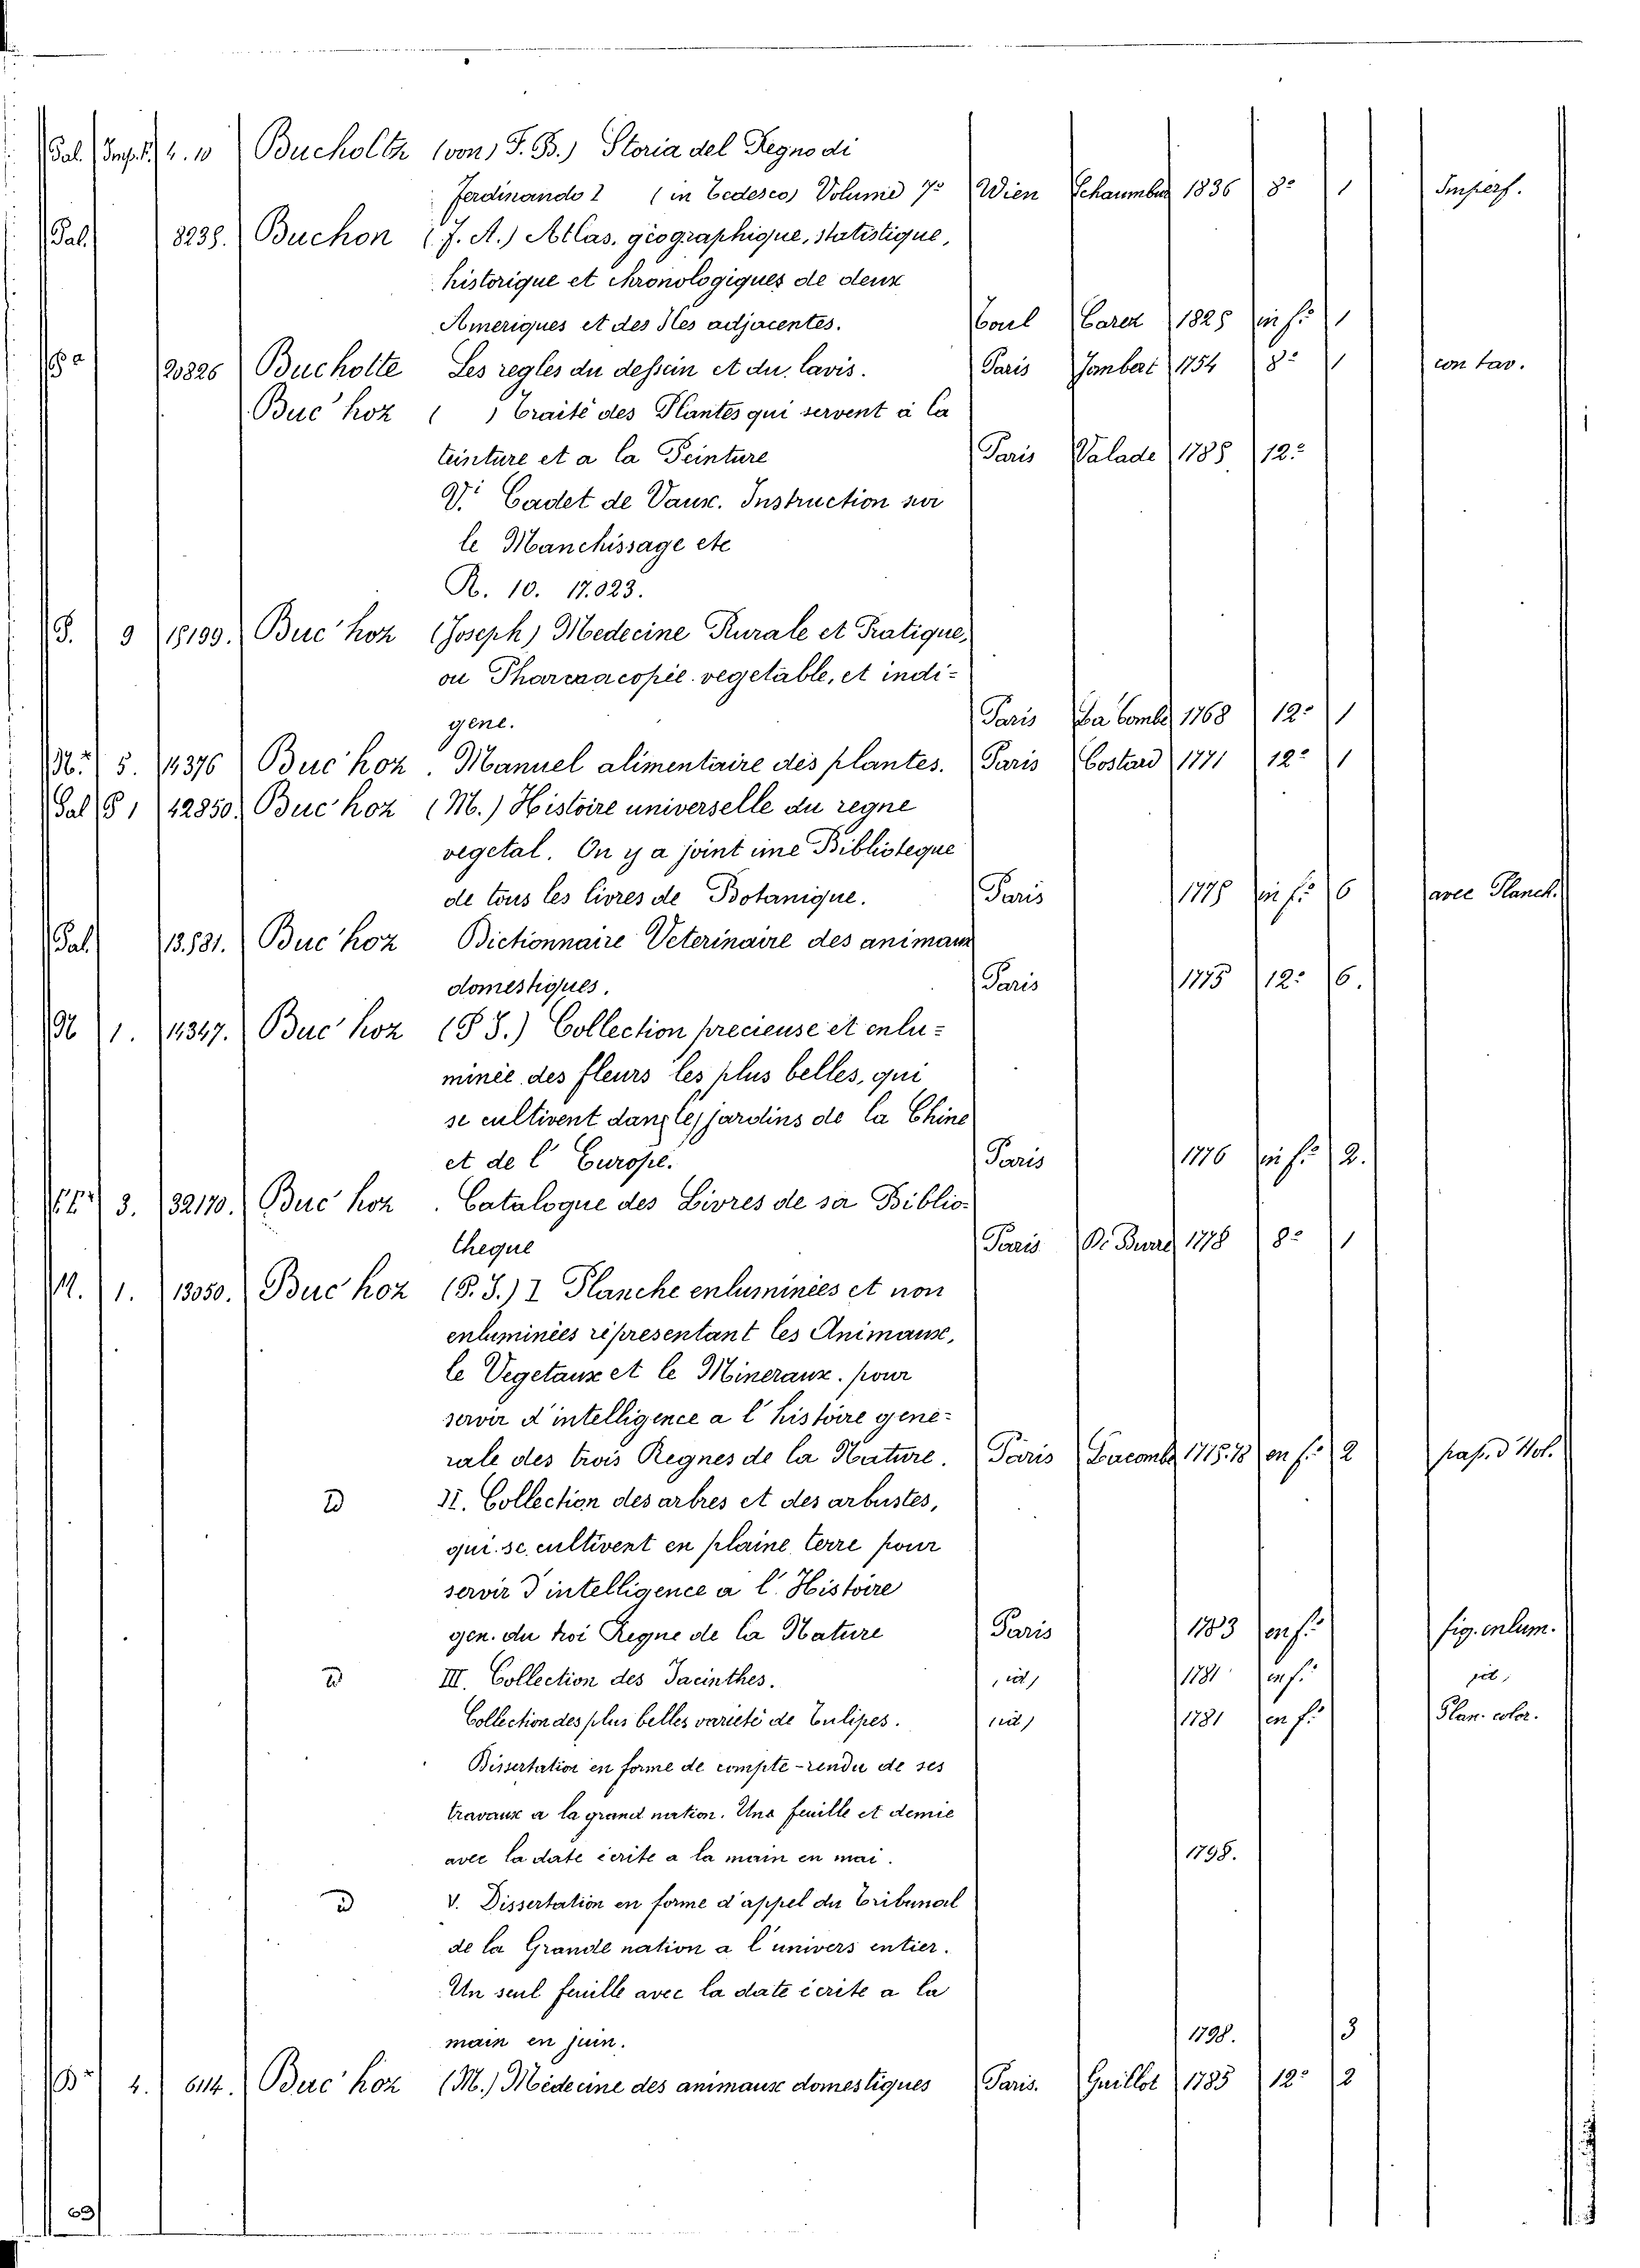 Pal. Imp. 4. 10 Bucholtz (von, F. B.) Storia del Regno di
Ferdinando I (in Tedesco) Volume 7º Wien Schaumburg 1836 8º 1 Imperf.
Pal. 8238. Buchon (J. A.) Atlas. géographique, statistique,
historique et chronologiques de deux
Ameriques et des Iles adjacentes. Carez 1825 in fº 1
20826 Bucholte Les regles du dessein et du lavis. Paris Jombert 1754 8º 1 con tav.
Buc'hoz ( ) Traité des Plantes qui servent à la
teinture et a la Peinture Paris Valade 1785 12º
V. Cadet de Vaux. Instruction sur
le Manchissage etc
R. 10. 17.023.
9 18199. Buc'hoz (Joseph) Medecine Rurale et Pratique,
ou Pharmacopée vegetable, et indi=
gene. Paris La Combe 1768 12º 1
5. 14376 Buc'hoz. Manuel alimentaire des plantes. Paris Costard 1771 12º 1
Pal 1 42850. Buc'hoz (M.) Histoire universelle du regne
vegetal. On y a joint une Biblioteque
de tous les livres de Botanique. Paris 1775 in fº 6 avec Planch.
Pal. 13.581. Buc'hoz Dictionnaire Veterinaire des animaux
domestiques. Paris 1775 12º 6.
1. 14347. Buc'hoz (P. J.) Collection precieuse et enlu=
minée des fleurs les plus belles, qui
se cultivent dans les jardins de la Chine
et de l'Europe. Paris 1776 in fº 2.
3. 32170. Buc'hoz . Catalogue des Livres de sa Biblio=
theque Paris D. Bure 1778 8º 1
1. 13050. Buc'hoz (P. J.) I Planche enluminées et non
enluminées représentant les Animaux,
le Vegetaux et le Mineraux. pour
servir d'intelligence a l'histoire gene=
rale des trois Regnes de la Nature. Paris Lacombe 1775.78 en fº 2
D II. Collection des arbres et des arbustes,
qui se cultivent en plaine terre pour
servir d'intelligence a l'Histoire
gen. du Regne de la Nature Paris 1783 en fº fig. enlum.
D III. Collection des Jacinthes. , id, 1781 en fº id,
Collection des plus belles varieté de Tulipes. , id, 1781 en fº Plan. color.
Dissertation en forme de compte-rendu de ses
travaux a la grand nation. Una feuille et demie
avec la date écrite a la main en mai. 1798.
D V. Dissertation en forme d'appel du Tribunal
de la Grande nation a l'univers entier.
Un seul feuille avec la date écrite a la
main en juin. 1798. 3
4. 6114. Buc'hoz (M.) Médecine des animaux domestiques Paris. Guillot 1785 12º 2
63